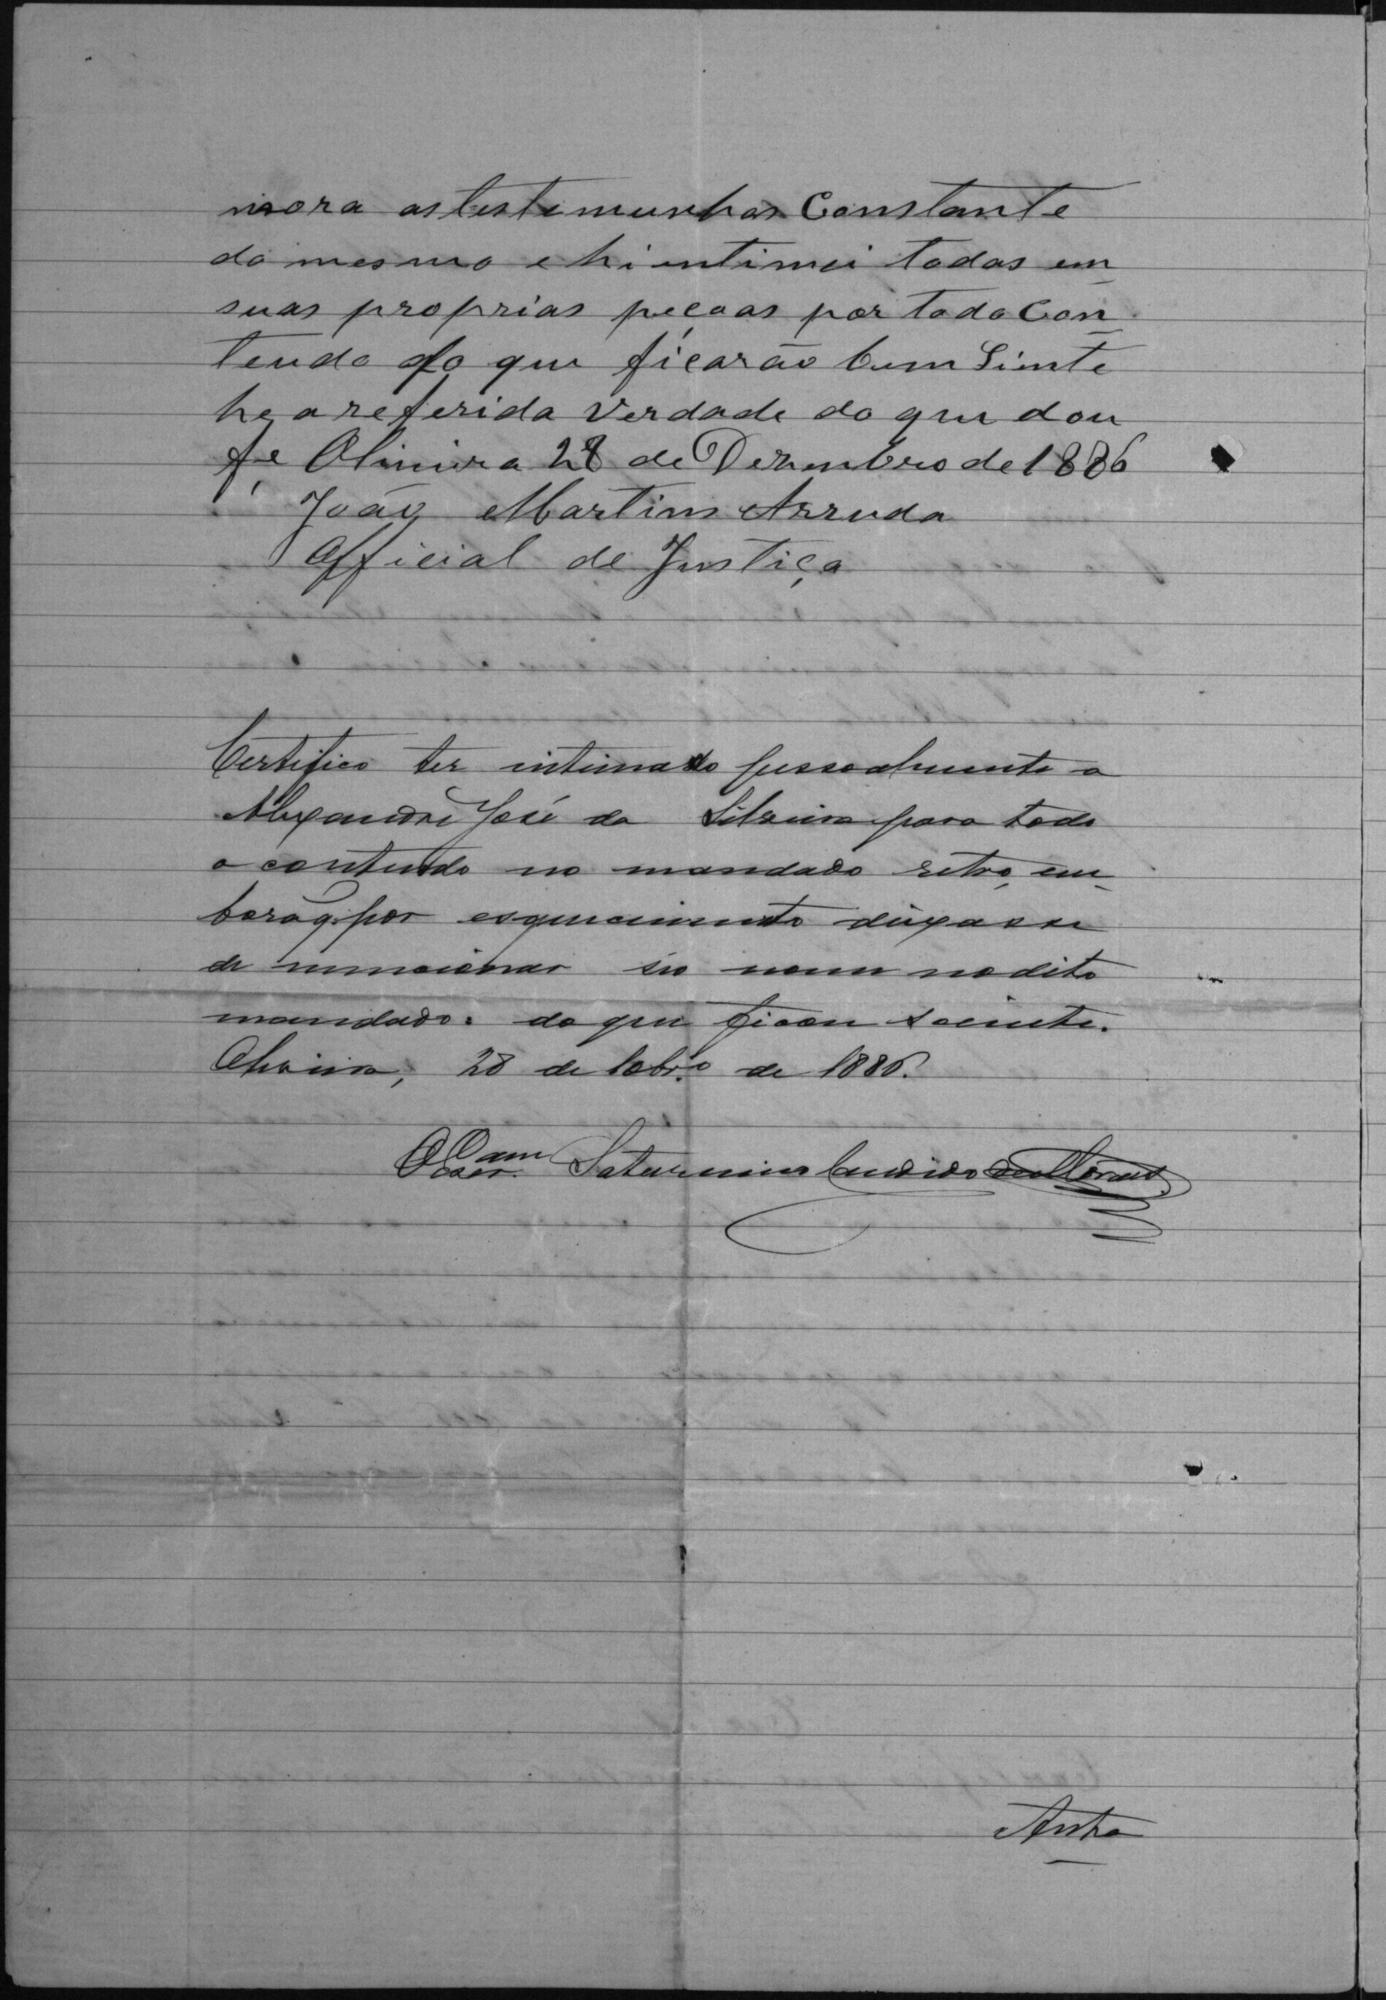 mora as testimunhas Constante
do mesmo e hi intimei todas em
suas proprias peçoas por todo Con
teudo do que ficarão bem Siente
he a referida verdade do que dou
fé Oliveira 28 de Dezembro de 1886
João Martins Arruda
Official de Justiça
Certifico ter intimado pessoalmente a
Alexandre José da Silveira para todo
o conteudo no mandado retro, em
bora q. por esquecimento deixasse
de mencionar seo nome no dito
mandado: do que ficou sciente.
Oliveira, 28 de 10br.o de 1886.
O Oam Saturnino Candido de Moraes